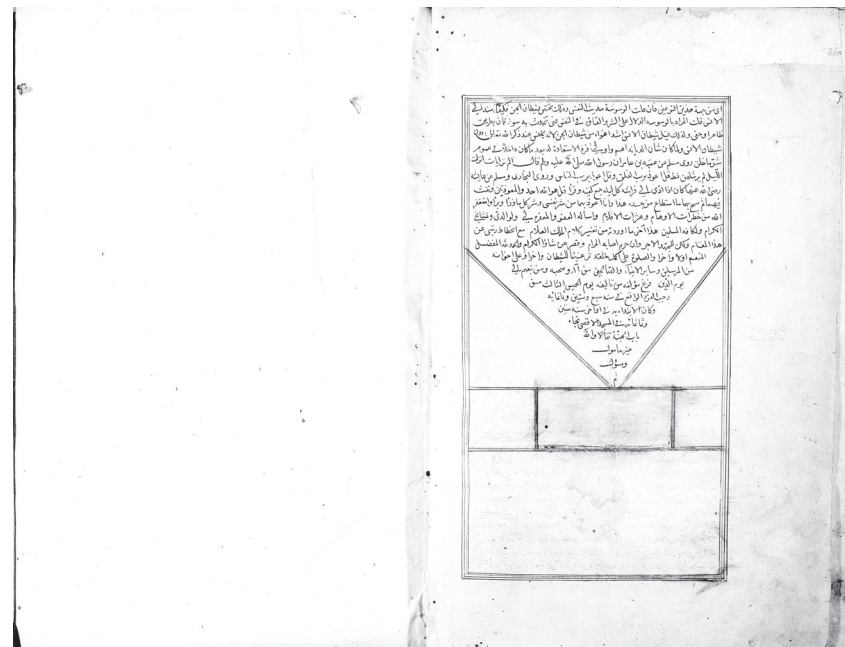 اي من جهة هذين النوعين فان قلت الوسوسة حديث النفس وذلك يختص بشيطان الجن فكيف يسند الى
الانس قلت المراد بالوسوسة الدلالة على الشر والقاؤه في النفس حتى تتحدث به سواء كان بطريق
ظاهر او خفي ولذلك قيل شيطان الانس اشد اغواء من شيطان الجن لانه يخنس عند ذكر الله تعالى دون
شيطان الانس ولما كان شأن الدين اهم فرد الاستعاذة له بعد ما كان داخلا في عموم
شر ما خلق روى مسلم عن عقبة بن عامر ان رسول الله صلى الله عليه وسلم قال الم تر ايات انزلت
الليلة لم ير مثلهن قط قل اعوذ برب الفلق وقل اعوذ برب الناس وروى البخاري ومسلم عن عائشة
رضي الله عنها كان اذا اوى الى فراشه كل ليلة جمع كفيه وقرأ قل هو الله احد والمعوذتين ونفث
فيهما ثم مسح بهما ما استطاع من جسده هذا وانا اعوذ بهما من شر نفسي وشر كل واستغفر
الله من خطرات الاوهام وعثرات الاقلام واساله العفو والمغفرة لي ولوالدي ومشايخي
الكرام ولكافة المسلمين هذا آخر ما اوردته من تفسير كلام الملك العلام مع انحطاط رتبتي عن
هذا المقام وكان للمجتهد الاجر وان حرم اصابة المرام وقصر عن شأو الكرام والحمد لله المفضل
المنعم اولا وآخرا والصلوة على اكمل خلقه ترغيما للشيطان واخزاء وعلى اخوانه
من المرسلين وساير الانبياء والتابعين من آله وصحبه ومن تبعهم الى
يوم الدين فرغ مؤلفه من تاليفه يوم الخميس الثالث من
رجب الفرد الواقع في سنه سبع وستين وثمانمايه
وكان الابتداء به في اوائل سنه ستين
وثمانمائة في المسجد الاقصى تجاه
باب الجنة تفألا والله
خير مامول
ومسؤل
م